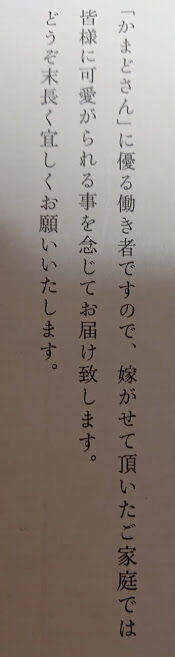 「かまどさん」に優る働き者ですので、嫁がせて頂いたご家庭では
皆様に可愛がられる事を念じてお届け致します。
どうぞ末長く宜しくお願いいたします。